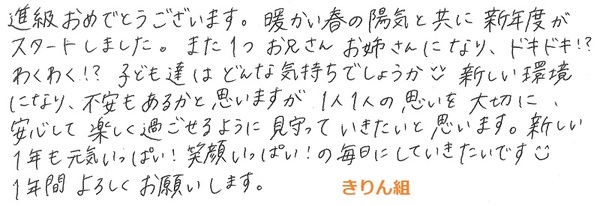 進級おめでとうございます。暖かい春の陽気と共に新年度が
スタートしました。また1つお兄さんお姉さんになり、ドキドキ!?
わくわく!?子ども達はどんな気持ちでしょうか 新しい環境
になり、不安もあるかと思いますが1人1人の思いを大切に、
安心して楽しく過ごせるように見守っていきたいと思います。新しい
1年も元気いっぱい!笑顔いっぱい!の毎日にしていきたいです
1年間よろしくお願いします。 きりん組